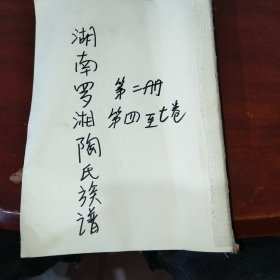 湖南罗湘陶氏族谱
第二册
第四至七卷